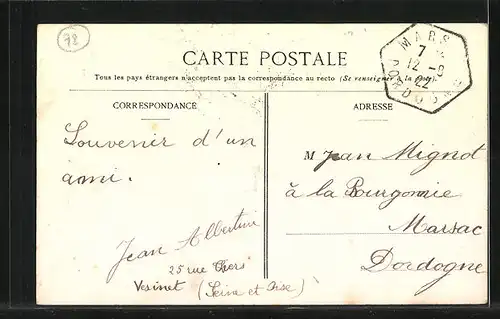 78
CARTE POSTALE
Tous les pays étrangers n'acceptent pas la correspondance au recto (Se renseigner à la Poste)
MARS
7
12 - 8
22
DORDOGNE
CORRESPONDANCE
ADRESSE
Souvenir d'un
ami.
Jean Albertini
25 rue Thers
Vesinet (Seine et Oise)
M Jean Mignot
à la Bourgonnie
Marsac
Dordogne